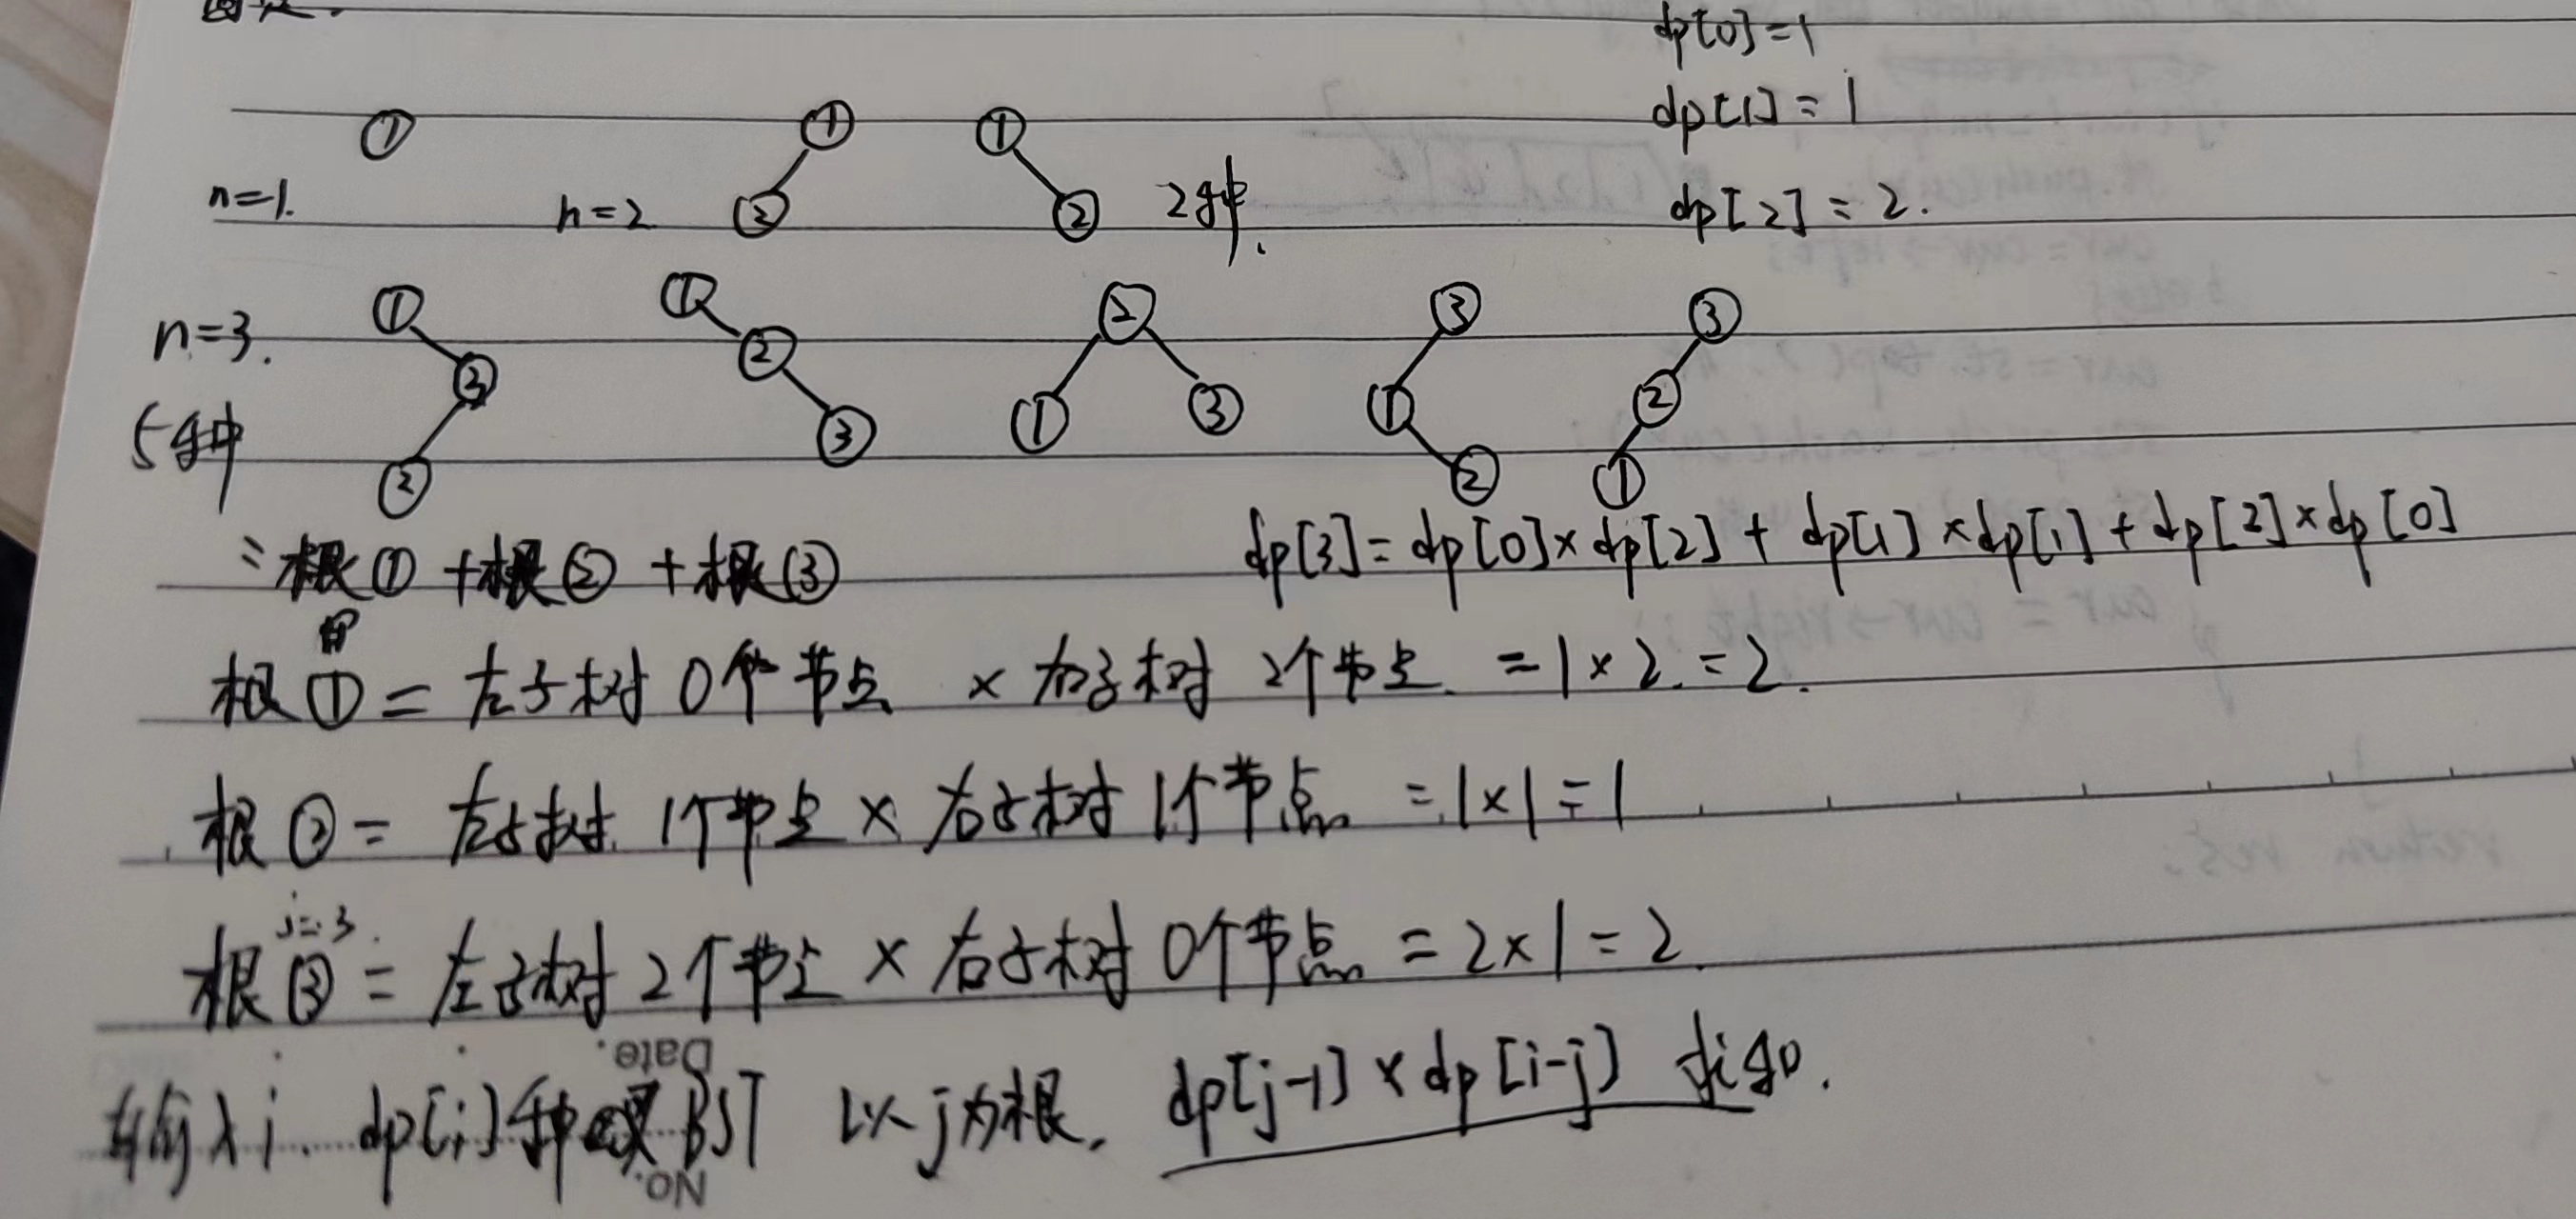 dp[0]=1
dp[1]=1
① ① ①
n=1. n=2 ② ② 2种. dp[2]=2.
n=3. ① ① ② ③ ③
③ ② ① ③ ① ②
5种 ② ③ ② ①
=根①+根②+根③ dp[3]=dp[0]×dp[2]+dp[1]×dp[1]+dp[2]×dp[0]
根①=左子树0个节点 × 右子树 2个节点 =1×2.=2.
根②=左子树 1个节点 × 右子树 1个节点 =1×1=1
j=3.
根③=左子树 2个节点 × 右子树 0个节点 =2×1=2.
Date.
输入i. dp[i]种 BST 以j为根. dp[j-1]×dp[i-j]
No.